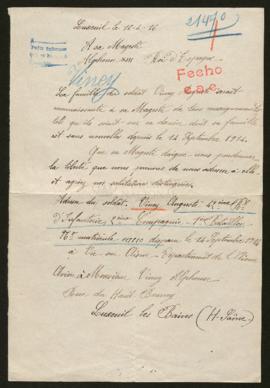 Luxeuil le 16-4-16
21470
A sa Majesté
Alphonse XIII Roi d'Espagne
Viney
Fecho
La famille du soldat Viney serait
reconnaissante a sa Majesté de bien
qu'ils sont en désire dont sa famille
est sans nouvelles depuis le 14 Septembre 1914.
Que sa Majesté daigne nous pardonner
la liberté que nous prenons de nous adresser a elle
et agréer nos salutations distinguées.
Adresse du soldat: Viney Auguste 42ème
d'Infanterie, 2ème Compagnie 1er Bataillon
No matricule disparu le 14 Septembre 1914
a Vic sur Aisne Département de l'Aisne
à Monsieur Viney Alphonse
Rue du Haut Bourey
Luxeuil les Bains (H-Saône)